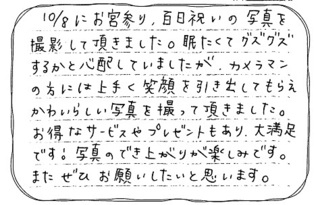 10/8にお宮参り、百日祝いの写真を
撮影して頂きました。眠たくてグズグズ
するかと心配していましたが、カメラマン
の方には上手く笑顔を引き出してもらえ
かわいらしい写真を撮って頂きました。
お得なサービスやプレゼントもあり、大満足
です!写真のでき上がりが楽しみです。
またぜひお願いしたいと思います。